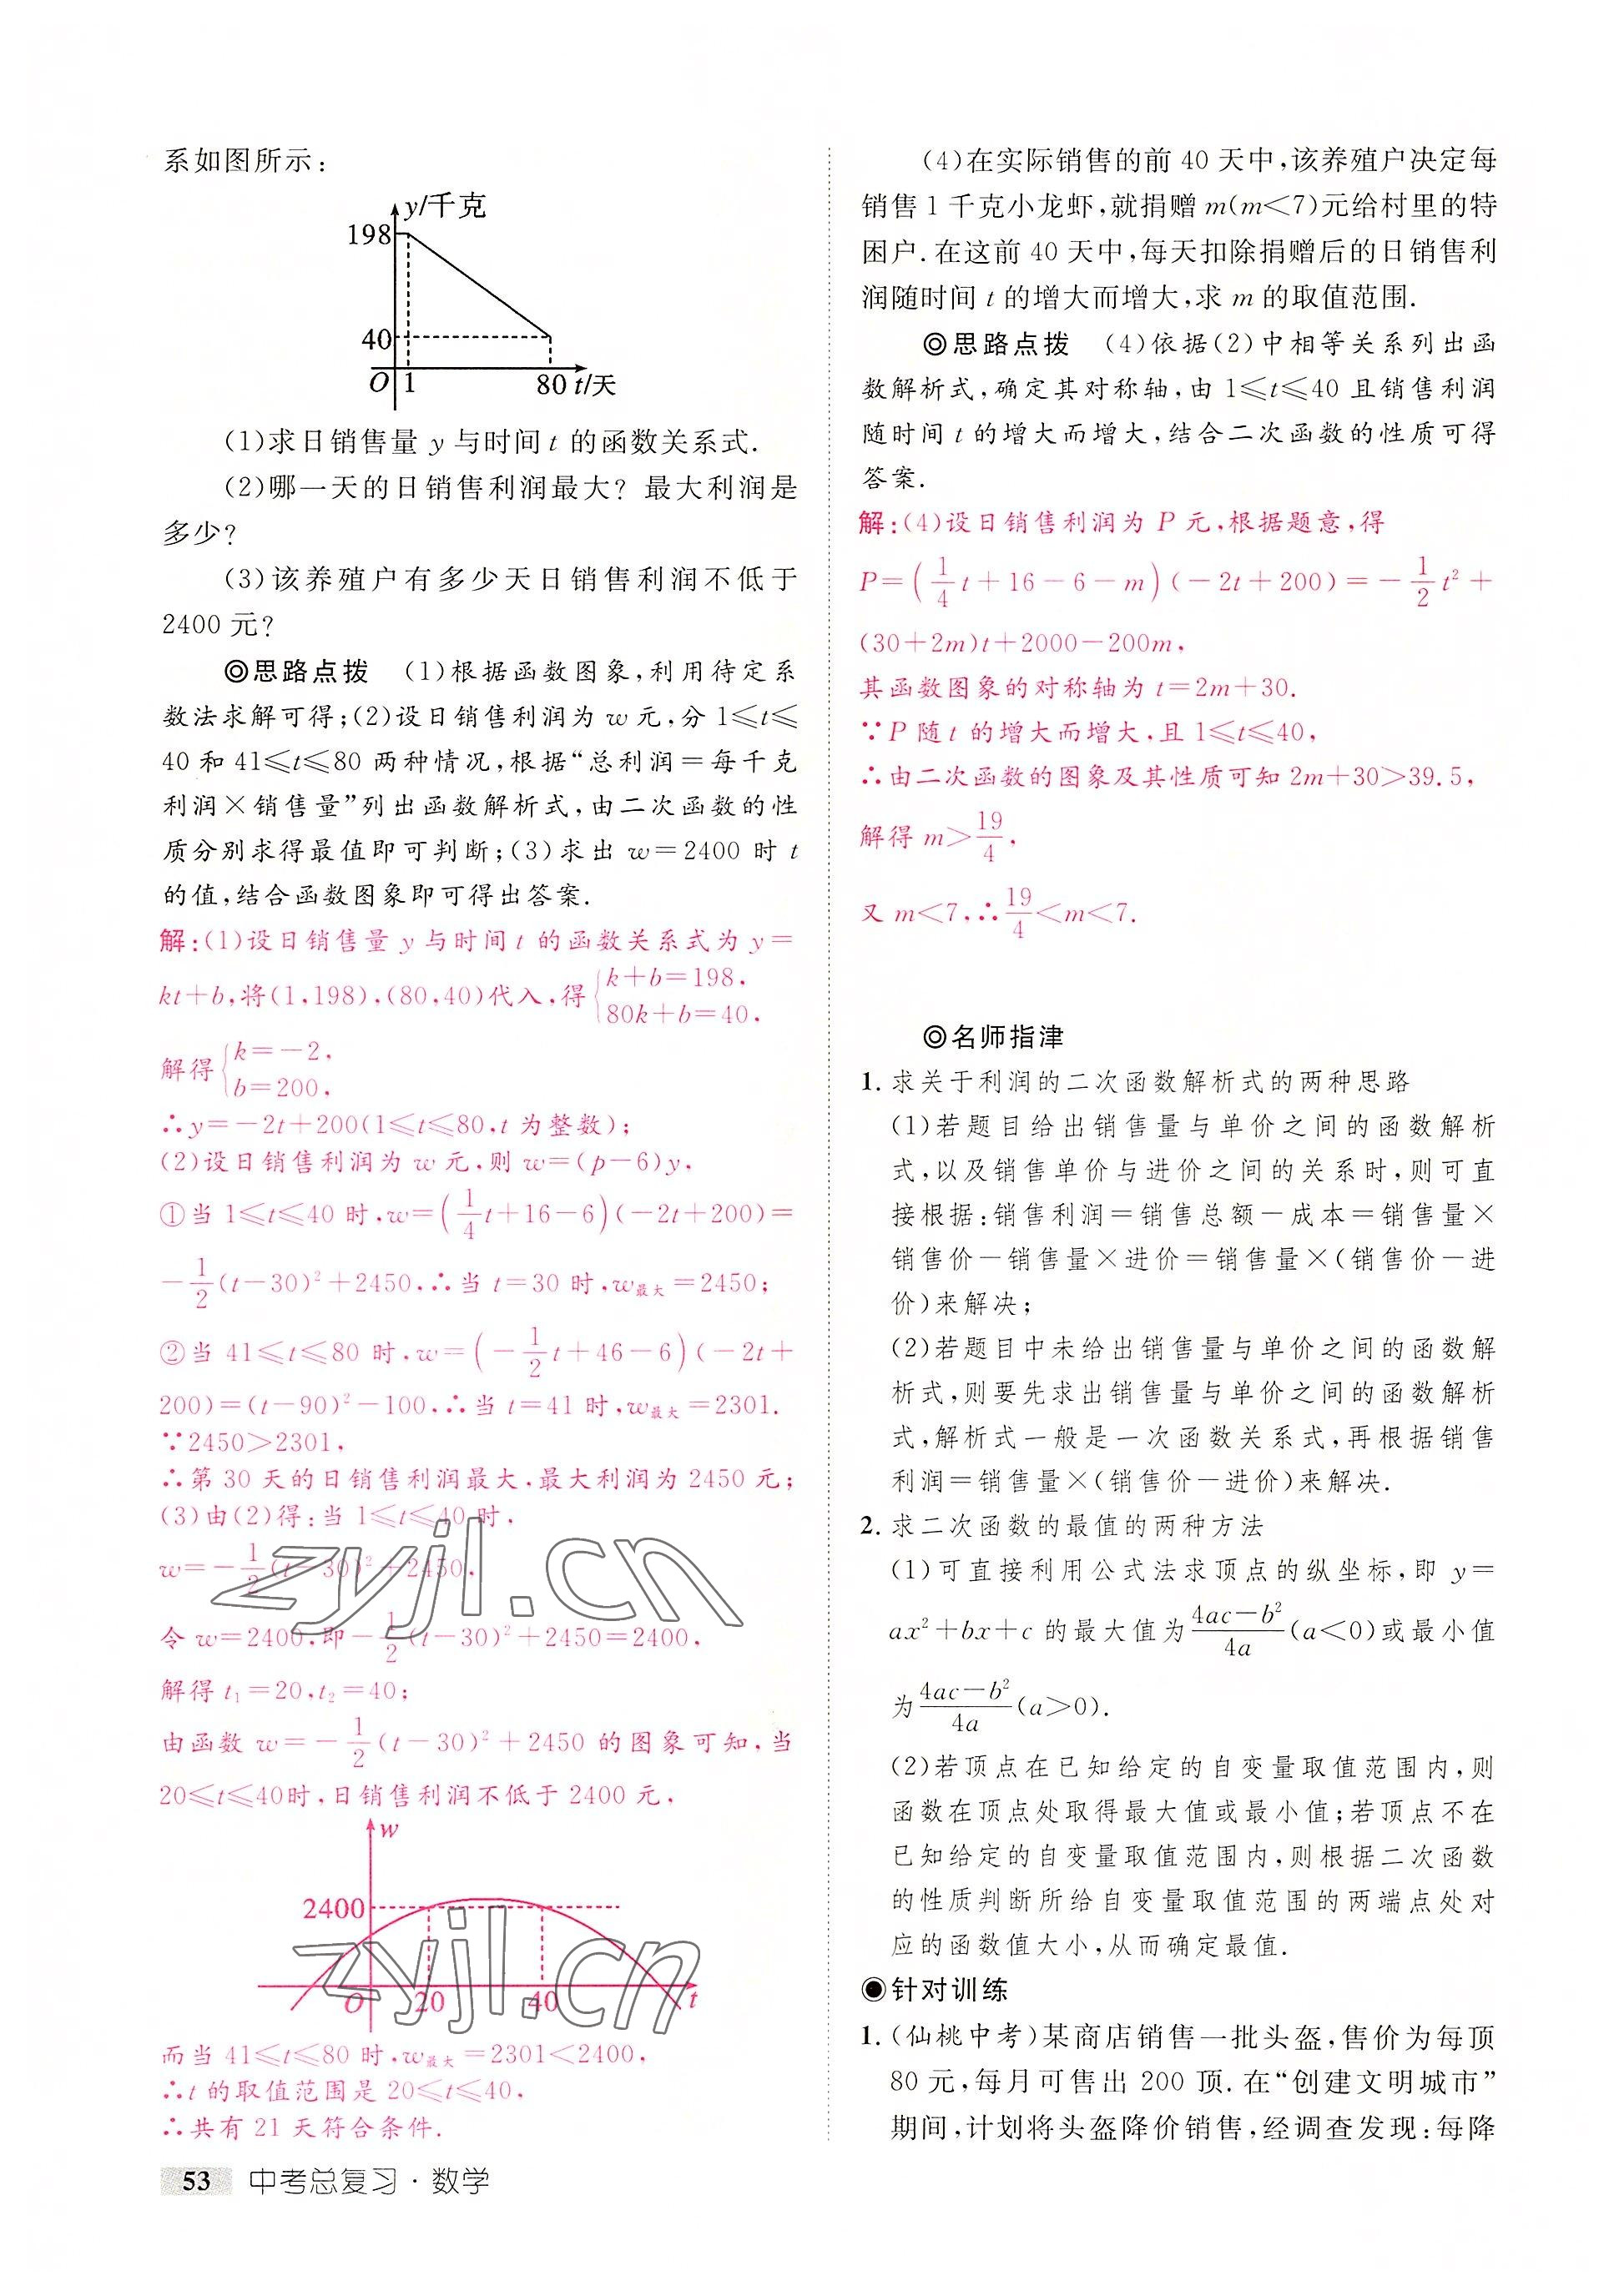 系如图所示:
y/千克
198
40
O 1 80 t/天
(1)求日销售量 y 与时间 t 的函数关系式.
(2)哪一天的日销售利润最大？最大利润是
多少？
(3)该养殖户有多少天日销售利润不低于
2400 元？
◎思路点拨 (1)根据函数图象,利用待定系
数法求解可得;(2)设日销售利润为 w 元,分 1≤t≤
40 和 41≤t≤80 两种情况,根据“总利润=每千克
利润×销售量”列出函数解析式,由二次函数的性
质分别求得最值即可判断;(3)求出 w=2400 时 t
的值,结合函数图象即可得出答案.
解:(1)设日销售量 y 与时间 t 的函数关系式为 y=
kt+b,将(1,198),(80,40)代入,得{k+b=198,
80k+b=40,
解得{k=-2,
b=200,
∴y=-2t+200(1≤t≤80,t 为整数);
(2)设日销售利润为 w 元,则 w=(p-6)y,
①当 1≤t≤40 时,w=(1/4 t+16-6)(-2t+200)=
-1/2(t-30)²+2450,∴当 t=30 时,w最大=2450;
②当 41≤t≤80 时,w=(-1/2 t+46-6)(-2t+
200)=(t-90)²-100,∴当 t=41 时,w最大=2301.
∵2450>2301,
∴第 30 天的日销售利润最大,最大利润为 2450 元;
(3)由(2)得:当 1≤t≤40 时,
w=-1/2(t-30)²+2450,
令 w=2400,即-1/2(t-30)²+2450=2400,
解得 t₁=20,t₂=40;
由函数 w=-1/2(t-30)²+2450 的图象可知,当
20≤t≤40时,日销售利润不低于 2400 元,
w
2400
O 20 40 t
而当 41≤t≤80 时,w最大=2301<2400,
∴t 的取值范围是 20≤t≤40,
∴共有 21 天符合条件.
53 中考总复习·数学
(4)在实际销售的前 40 天中,该养殖户决定每
销售 1 千克小龙虾,就捐赠 m(m<7)元给村里的特
困户.在这前 40 天中,每天扣除捐赠后的日销售利
润随时间 t 的增大而增大,求 m 的取值范围.
◎思路点拨 (4)依据(2)中相等关系列出函
数解析式,确定其对称轴,由 1≤t≤40 且销售利润
随时间 t 的增大而增大,结合二次函数的性质可得
答案.
解:(4)设日销售利润为 P 元,根据题意,得
P=(1/4 t+16-6-m)(-2t+200)=-1/2 t²+
(30+2m)t+2000-200m,
其函数图象的对称轴为 t=2m+30.
∵P 随 t 的增大而增大,且 1≤t≤40,
∴由二次函数的图象及其性质可知 2m+30>39.5,
解得 m>19/4,
又 m<7,∴19/4<m<7.
◎名师指津
1. 求关于利润的二次函数解析式的两种思路
(1)若题目给出销售量与单价之间的函数解析
式,以及销售单价与进价之间的关系时,则可直
接根据:销售利润=销售总额-成本=销售量×
销售价-销售量×进价=销售量×(销售价-进
价)来解决;
(2)若题目中未给出销售量与单价之间的函数解
析式,则要先求出销售量与单价之间的函数解析
式,解析式一般是一次函数关系式,再根据销售
利润=销售量×(销售价-进价)来解决.
2. 求二次函数的最值的两种方法
(1)可直接利用公式法求顶点的纵坐标,即 y=
ax²+bx+c 的最大值为(4ac-b²)/4a(a<0)或最小值
为(4ac-b²)/4a(a>0).
(2)若顶点在已知给定的自变量取值范围内,则
函数在顶点处取得最大值或最小值;若顶点不在
已知给定的自变量取值范围内,则根据二次函数
的性质判断所给自变量取值范围的两端点处对
应的函数值大小,从而确定最值.
◉针对训练
1. (仙桃中考)某商店销售一批头盔,售价为每顶
80 元,每月可售出 200 顶.在“创建文明城市”
期间,计划将头盔降价销售,经调查发现:每降
zyjl.cn
zyjl.cn